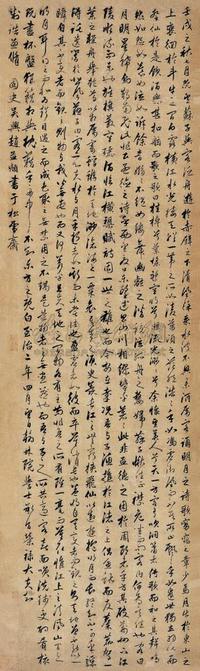 壬戌之秋七月既望蘇子與客泛舟遊於赤壁之下清風徐來水波不興舉酒屬客誦明月之詩歌窈窕之章少焉月出於東山之
上徘徊於斗牛之間白露橫江水光接天縱一葦之所如凌萬頃之茫然浩浩乎如馮虛御風而不知其所止飄飄乎如遺世獨立羽化而
登仙於是飲酒樂甚扣舷而歌之歌曰桂棹兮蘭槳擊空明兮泝流光渺渺兮余懷望美人兮天一方客有吹洞簫者倚歌而和之其聲嗚嗚
然如怨如慕如泣如訴餘音嫋嫋不絕如縷舞幽壑之潛蛟泣孤舟之嫠婦蘇子愀然正襟危坐而問客曰何為其然也客曰
月明星稀烏鵲南飛此非曹孟德之詩乎西望夏口東望武昌山川相繆鬱乎蒼蒼此非孟德之困於周郎者乎方其破荊州下江
陵順流而東也舳艫千里旌旗蔽空釃酒臨江橫槊賦詩固一世之雄也而今安在哉況吾與子漁樵於江渚之上侶魚蝦而友麋鹿駕一
葉之輕舟舉匏樽以相屬寄蜉蝣於天地渺滄海之一粟哀吾生之須臾羨長江之無窮挾飛仙以遨遊抱明月而長終知不可乎驟
得託遺響於悲風蘇子曰客亦知夫水與月乎逝者如斯而未嘗往也盈虛者如彼而卒莫消長也蓋將自其變者而觀之則天地曾不能以一瞬
自其不變者而觀之則物與我皆無盡也而又何羨乎且夫天地之間物各有主苟非吾之所有雖一毫而莫取惟江上之清風與山間之
明月耳得之而為聲目遇之而成色取之無禁用之不竭是造物者之無盡藏也而吾與子之所共適客喜而笑洗盞更酌肴核
既盡杯盤狼藉相與枕藉乎舟中不知東方之既白至治二年四月望日翰林院學士承旨榮祿大夫知
制誥兼修國史吳興趙孟頫書于松雪齋